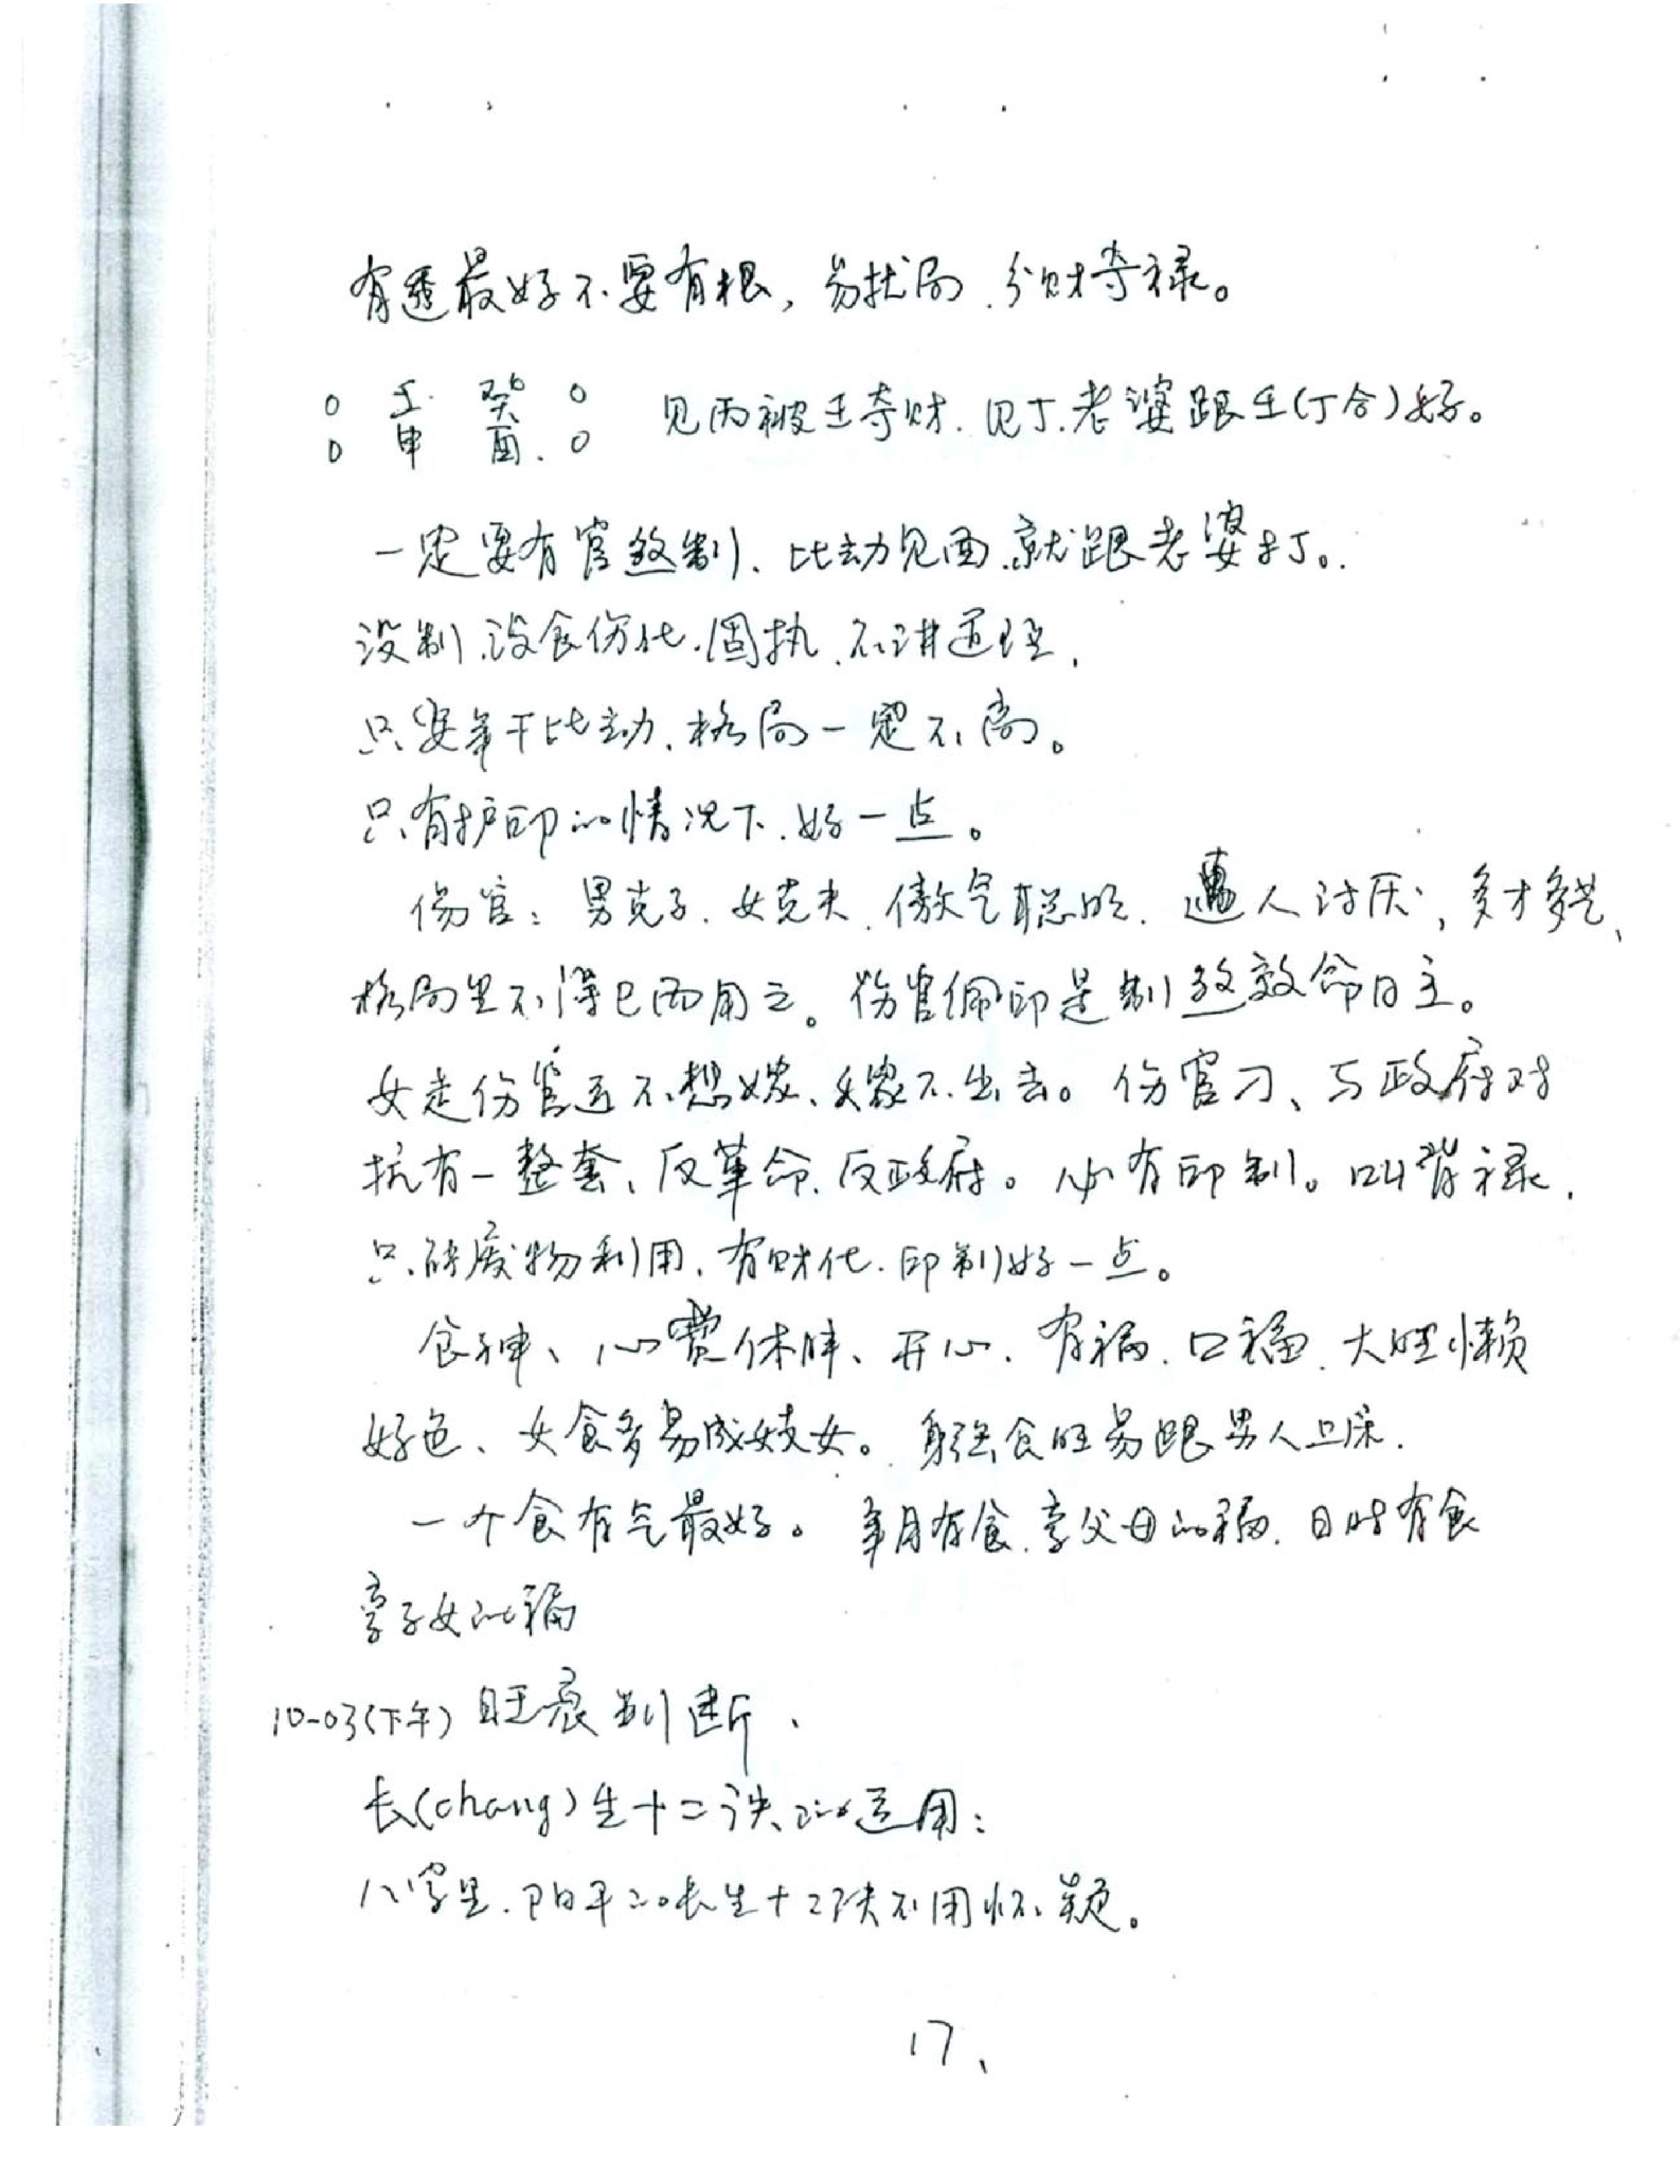 有透最好不要有根，易扰局、分财夺禄。
0 壬 癸 0 见丙被壬夺财. 见丁.老婆跟壬(丁合)好。
0 申 酉. 0
一定要有官煞制、比劫见面.就跟老婆打。
没制.没食伤化.固执.不讲道理.
只要年干比劫.格局一定不高。
只有护印的情况下.好一点。
伤官：男克子.女克夫.傲气聪明.遭人讨厌，多才多艺、
格局里不得已而用之。伤官佩印是制煞效命日主。
女走伤官运不想嫁、嫁不出去。伤官刁、与政府对
抗有一整套、反革命.反政府。必有印制。叫背禄.
只能废物利用.有财化.印制好一点。
食神、心宽体胖、开心.有福.口福.太旺懒
好色、女食多易成妓女。身强食旺易跟男人上床.
一个食有气最好。年月有食.享父母的福.日时有食
享子女的福
10-03(下午) 旺衰判断、
长(chang)生十二诀的运用：
八字里.阳干的长生十二诀不用怀疑。
17、